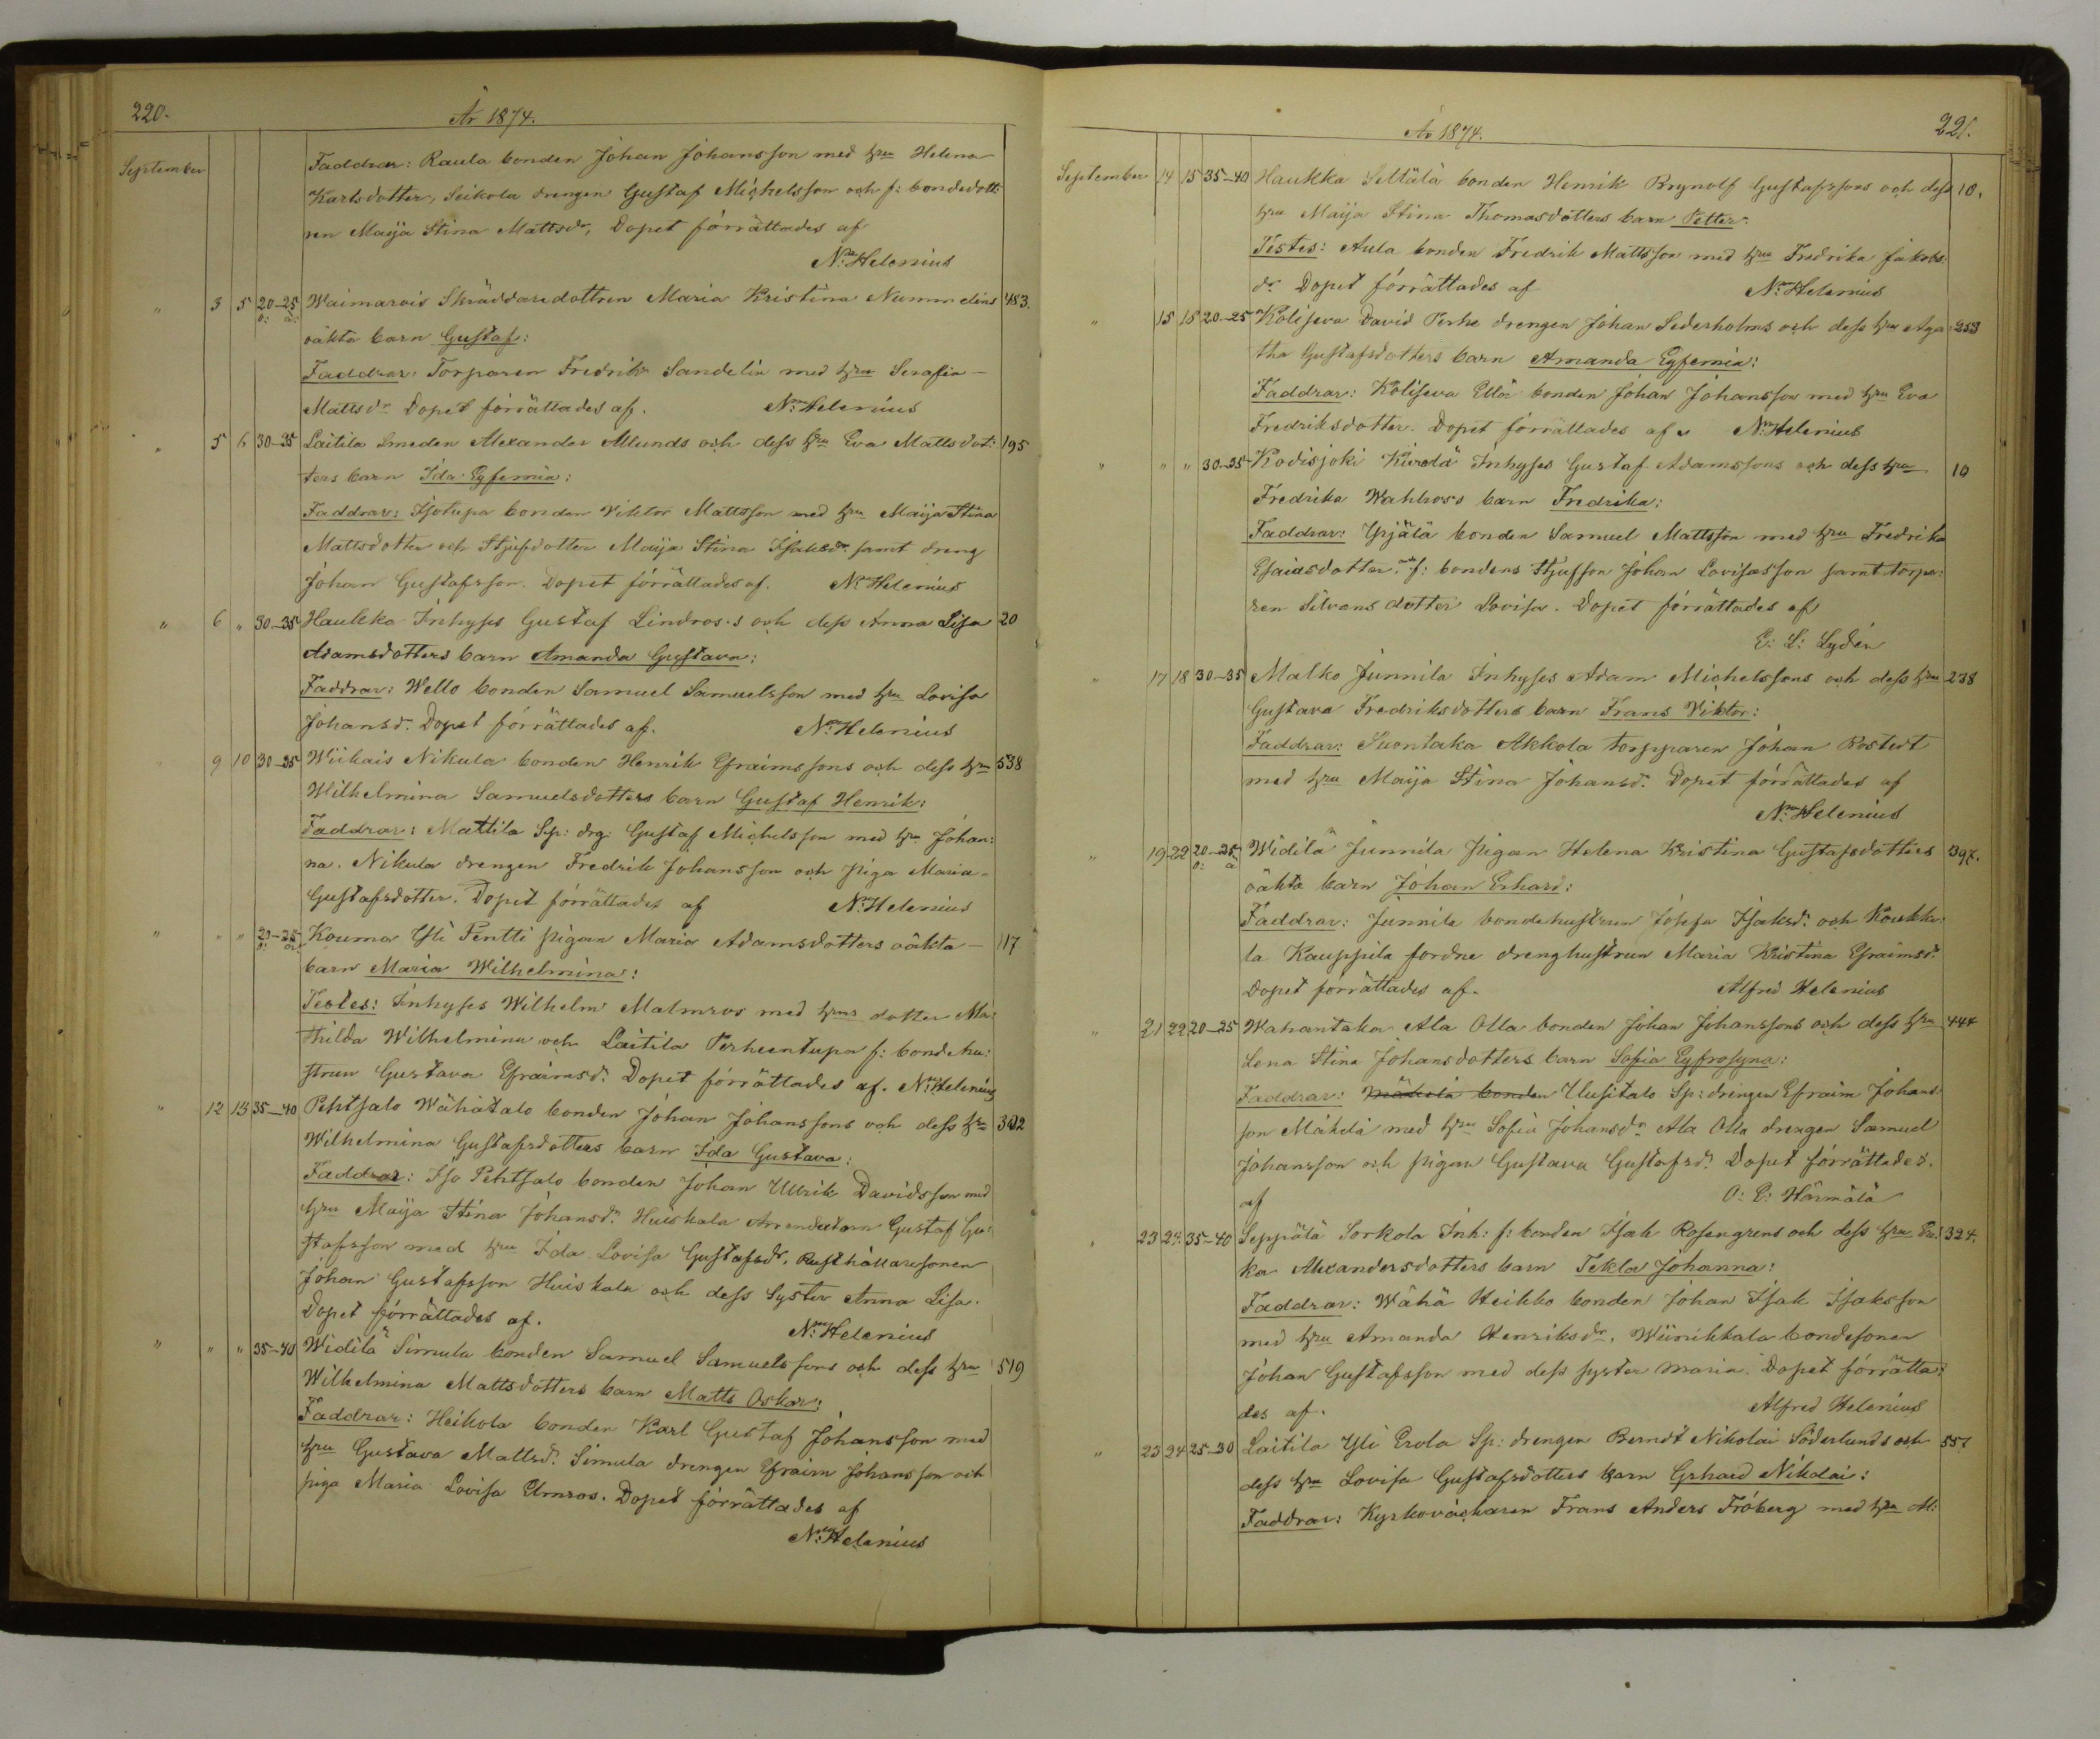 220.
År 1874.
September
Faddrar: Raula bonden Johan Johansson med hru Helena
Karlsdotter, Seikola drengen Gustaf Michelsson och f: bondedott
ren Maija Stina Mattsdr, Dopet förrättades af
N: Helenius
" 3 5 20–25 Waimarois Skräddaredottren Maria Kristina Nummelins 483.
o: ä:
oäkta barn Gustaf:
Faddrar: Torparen Fredrik Sandelin med hru Serafia
Mattsdr Dopet förrättades af. N: Helenius
" 5 6 30–35 Laitila Smeden Alexander Ahlunds och dess hru Eva Mattsdot: 195
ters barn Ida Eyfemia:
Faddrar: Isotupa bonden Viktor Mattsson med hru Maija Stina
Mattsdotter och Stjufdotter Maija Stina Isaksdr. samt dreng
Johan Gustafsson. Dopet förrättades af. N: Helenius
" 6 " 30–35 Haukka Inhyses Gustaf Lindros's och dess Anna Lisa 20
Adamsdotters barn Amanda Gustava:
Faddrar: Wello bonden Samuel Samuelsson med hru Lovisa
Johansdr. Dopet förrättades af. N: Helenius
" 9 10 30–35 Wiikais Nikula bonden Henrik Efraimssons och dess hru 538
Wilhelmina Samuelsdotters barn Gustaf Henrik:
Faddrar: Mattila Sp: drg: Gustaf Michelsson med hru Johan:
na. Nikula drengen Fredrik Johansson och Piga Maria
Gustafsdotter. Dopet förrättades af N: Helenius
" " " 20–25 Kouma Yli Pentti pigan Maria Adamsdotters oäkta 117
o: ä:
barn Maria Wilhelmina:
Testes: Inhyses Wilhelm Malmros med hrus dotter Ma:
thilda Wilhelmina och Laitila Perheentupa f: bondehu:
strun Gustava Efraimsdr. Dopet förrättades af. N: Helenius
" 12 13 35–40 Pehtsalo Wähätalo bonden Johan Johanssons och dess hru 302
Wilhelmina Gustafsdotters barn Ida Gustava:
Faddrar: Iso Pehtsalo bonden Johan Ullrik Davidsson med
hru Maija Stina Johansdr. Huiskala Arrendatorn Gustaf Gu:
stafsson med hru Ida Lovisa Gustafsdr. Rusthållaresonen
Johan Gustafsson Huiskala och dess Syster Anna Lisa.
Dopet förrättades af.
N: Helenius
" " " 35–40 Widilä Simula bonden Samuel Samuelssons och dess hru 519
Wilhelmina Mattsdotters barn Matts Oskar:
Faddrar: Heikola bonden Karl Gustaf Johansson med
hru Gustava Mattsdr. Simula drengen Efraim Johansson och
piga Maria Lovisa Elmros. Dopet förrättades af
N: Helenius
År 1874.
221.
September 14 15 35–40 Haukka Seltälä bonden Henrik Brynolf Gustafssons och dess 10.
hru Maija Stina Thomasdotters barn Petter:
Testes: Aula bonden Fredrik Mattsson med hru Fredrika Jakobs:
dr Dopet förrättades af N: Helenius
" 15 18 20–25 Koliseva David Perhe drengen Johan Sederholms och dess hru Aga: 253
tha Gustafsdotters barn Amanda Eyfemia:
Faddrar: Koliseva Ellä bonden Johan Johansson med hru Eva
Fredriksdotter. Dopet förrättades af N: Helenius
" " " 30–35 Kodisjoki Kivelä Inhyses Gustaf Adamssons och dess hru 10
Fredrika Wahlros's barn Fredrika:
Faddrar: Ypjälä bonden Samuel Mattsson med hru Fredrika
Esaiasdotter. och f: bondens Stjufson Johan Lovisasson samt torpa:
ren Silvans dotter Lovisa. Dopet förrättades af
E: L: Lydén
" 17 18 30–35 Malko Junnila Inhyses Adam Michelssons och dess hru 238
Gustava Fredriksdotters barn Frans Viktor:
Faddrar: Suontaka Akkola torpparen Johan Rostedt
med hru Maija Stina Johansdr. Dopet förrättades af
N: Helenius
" 19 22 20–25 Widilä Junnila pigan Helena Kristina Gustafsdotters 397.
o: ä:
oäkta barn Johan Erhard:
Faddrar: Junnila bondehustrun Josefa Isaksdr. och Koukka:
la Kauppila fordne drenghustrun Maria Kristina Efraimsdr.
Dopet förrättades af. Alfred Helenius
" 21 22 20–25 Wahantaka Ala Olla bonden Johan Johanssons och dess hru 444
Lena Stina Johansdotters barn Sofia Eyfrosyna:
Faddrar: Mäkelä bonden Uusitalo Sp: drengen Efraim Johans:
son Mäkelä med hru Sofia Johansdr. Ala Olla drengen Samuel
Johansson och pigan Gustava Gustafsdr. Dopet förrättades.
af O: E: Härmälä
" 23 24 35–40 Seppälä Sorkola Inh: f: bonden Isak Rosengrens och dess hru Eri: 324.
ka Alexandersdotters barn Tekla Johanna:
Faddrar: Wähä Heikko bonden Johan Isak Isaksson
med hru Amanda Henriksdr. Wiinikkala bondesonen
Johan Gustafsson med dess syster Maria. Dopet förrätta:
des af. Alfred Helenius
" 23 24 25–30 Laitila Yli Erola Sp: drengen Berndt Nikolai Söderlunds och 551
dess hru Lovisa Gustafsdotters barn Gerhard Nikolai:
Faddrar: Kyrkoväcktaren Frans Anders Fröberg med hru M: